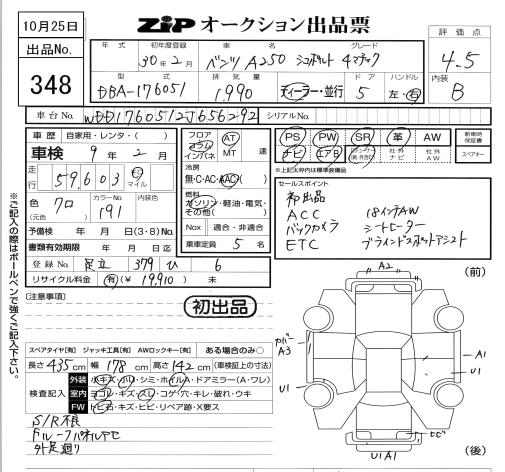 10月25日
ZIP オークション出品票
出品No.
348
評価点
4.5
内装
B
年式 初年度登録 車名 グレード
30年2月 ベンツ A250 シュポルト 4マチック
型式 排気量 ドア ハンドル
DBA-176051 1,990 ディーラー・並行 5 左・右
車台No. WDD1760512J656292 シリアルNo.
車歴 自家用・レンタ・( )
車検 9年2月
走行 59,603 Km マイル
色 クロ (元色) カラーNo. 191
予備検 年 月 日(3・8)No.
書類有効期限 年 月 日迄
登録No. 足立 379 ひ 6
リサイクル料金 有(¥ 19,910 ) 未
フロア コラム インパネ
AT MT 速
冷房
無・C・AC・AAC
燃料
ガソリン・軽油・電気・その他( )
Nox 適合・非適合
乗車定員 5 名
PS PW SR 革 AW
ナビ エアB 社外ナビ 社外AW
新車時保証書
スペアキー
※上記太枠内は標準装備品
セールスポイント
初出品
ACC 18インチAW
バックカメラ シートヒーター
ETC ブラインドスポットアシスト
※ご記入の際はボールペンで強くご記入下さい。
[注意事項]
初出品
(前)
A2
カバーA3
A1
U1
U1
ヒビ
U1A1
(後)
スペアタイヤ[有] ジャッキ工具[有] AWロックキー[有] ある場合のみ○
長さ 435 cm 幅 178 cm 高さ 142 cm (車検証上の寸法)
検査記入
外装 小キズ・小U・シミ・ホイルA・ドアミラー(A・ワレ)
室内 ヨゴレ・キズ・スレ・コゲ・穴・キレ・破れ・ウキ
FW トビ石・キズ・ヒビ・リペア跡・X要ス
S/R不良
外足廻り